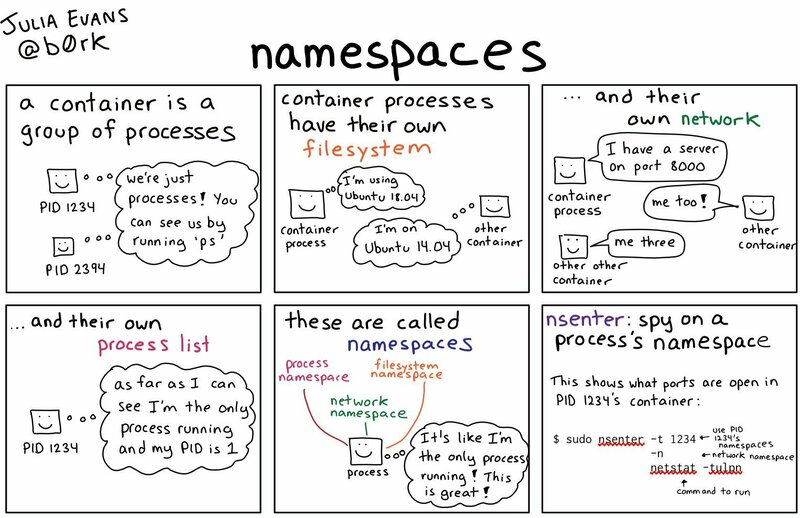 JULIA EVANS
@b0rk
namespaces
a container is a
group of processes
PID 1234
we're just
processes! You
can see us by
running 'ps'
PID 2394
container processes
have their own
filesystem
container
process
I'm using
Ubuntu 18.04
I'm on
Ubuntu 14.04
other
container
... and their
own network
I have a server
on port 8000
container
process
me too!
other
container
me three
other other
container
...and their own
process list
PID 1234
as far as I can
see I'm the only
process running
and my PID is 1
these are called
namespaces
process
namespace
filesystem
namespace
network
namespace
process
It's like I'm
the only process
running! This
is great!
nsenter: spy on a
process's namespace
This shows what ports are open in
PID 1234's container:
$ sudo nsenter -t 1234 ← use PID
1234's
namespaces
-n ← network namespace
netstat -tulpn
↑
command to run